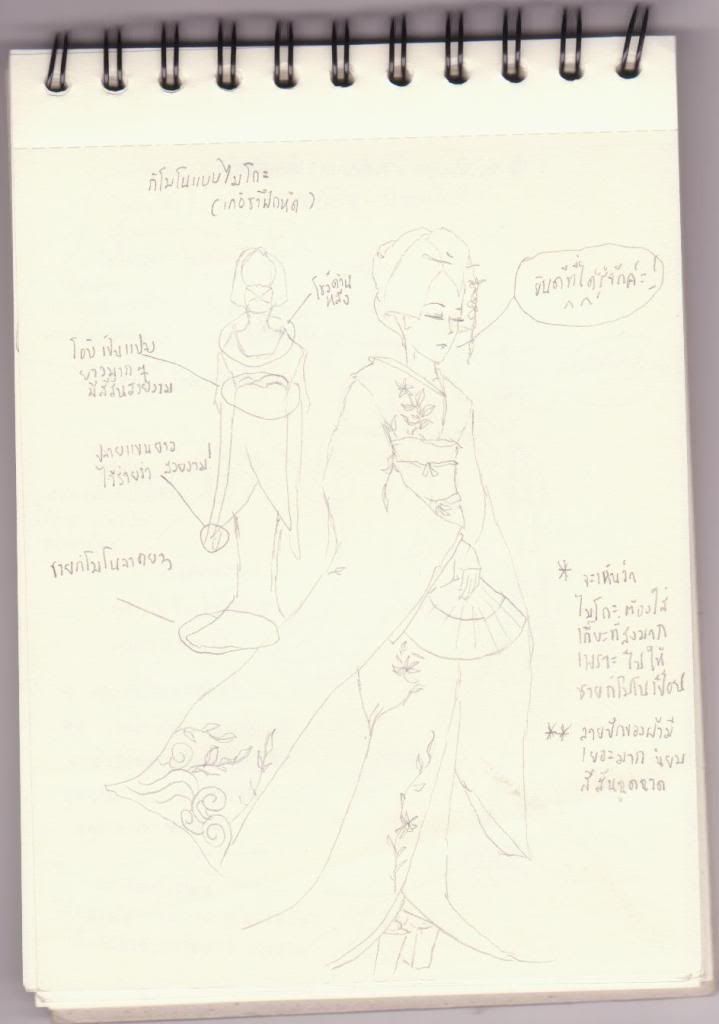 กิโมโนแบบไมโกะ
(เกอิชาฝึกหัด)
โชว์ด้าน
หลัง
ยินดีที่ได้รู้จักค่ะ!
โอบิเป็นแบบ
ยาวมากๆ
มีสีสันสวยงาม
ปลายแขนยาว
ใช้ร่ายรำ สวยงาม!
ชายกิโมโนลากยาว
* จะเห็นว่า
ไมโกะต้องใส่
เกี๊ยะที่สูงมาก
เพราะไม่ให้
ชายกิโมโนเปื้อน
** ลายปักของผ้ามี
เยอะมาก นิยม
สีสันฉูดฉาด